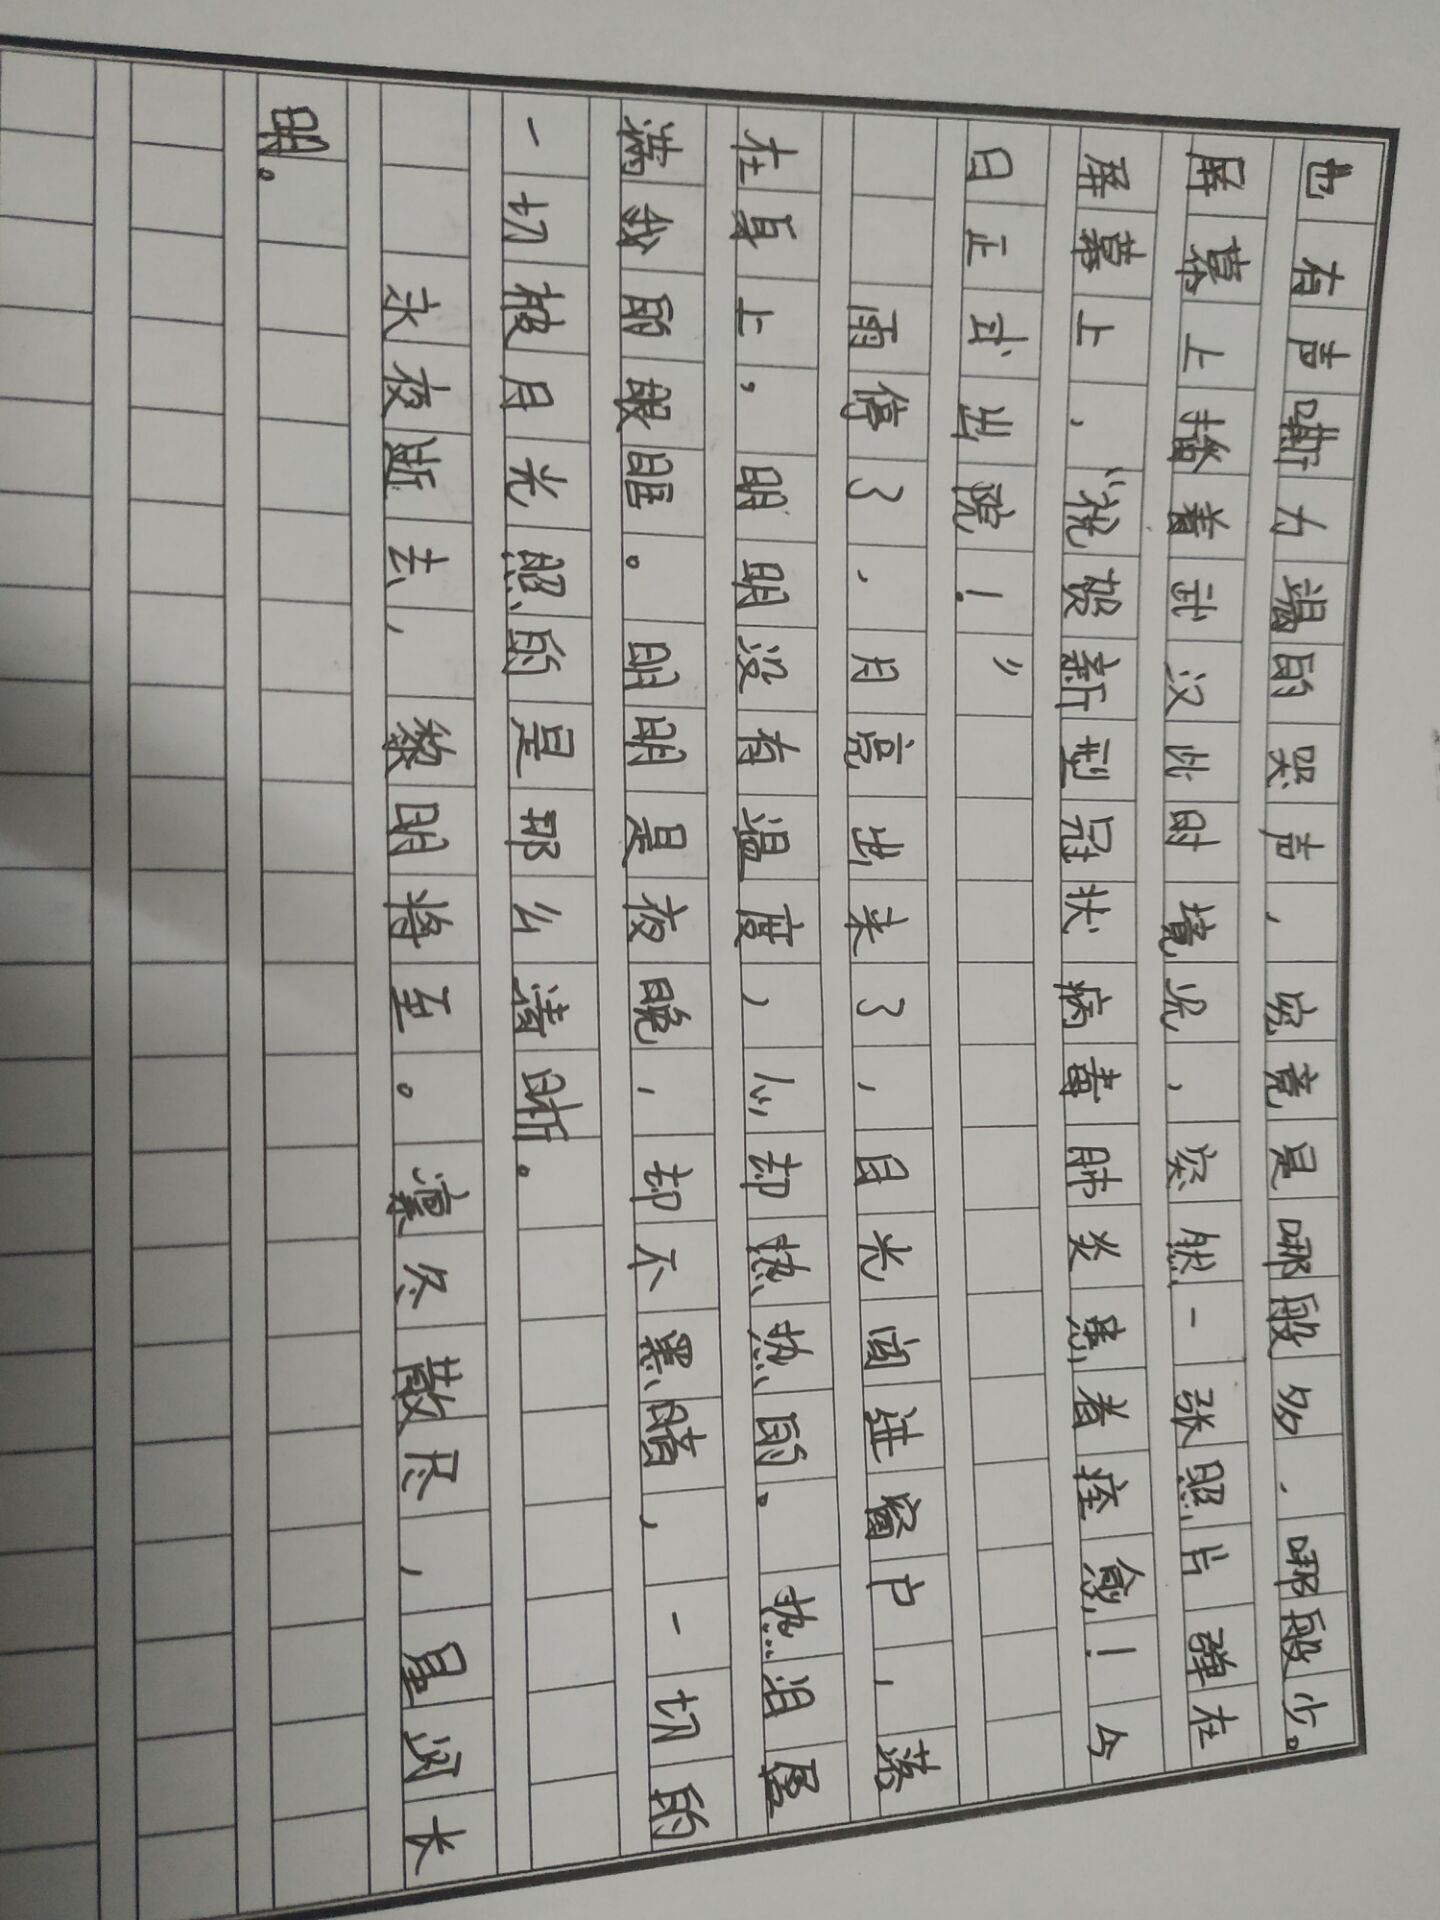 也有声嘶力竭的哭声，究竟是哪般多，哪般少。
屏幕上播着武汉此时境况，突然一张照片弹在
屏幕上，“祝贺新型冠状病毒肺炎患者痊愈！今
日正式出院！”
雨停了，月亮出来了，月光闯进窗户，落
在身上，明明没有温度，心却热热的。热泪屋
满我的眼眶。明明是夜晚，却不黑暗，一切的
一切被月光照的是那么清晰。
永夜逝去，黎明将至。凛冬散尽，星河长
明。